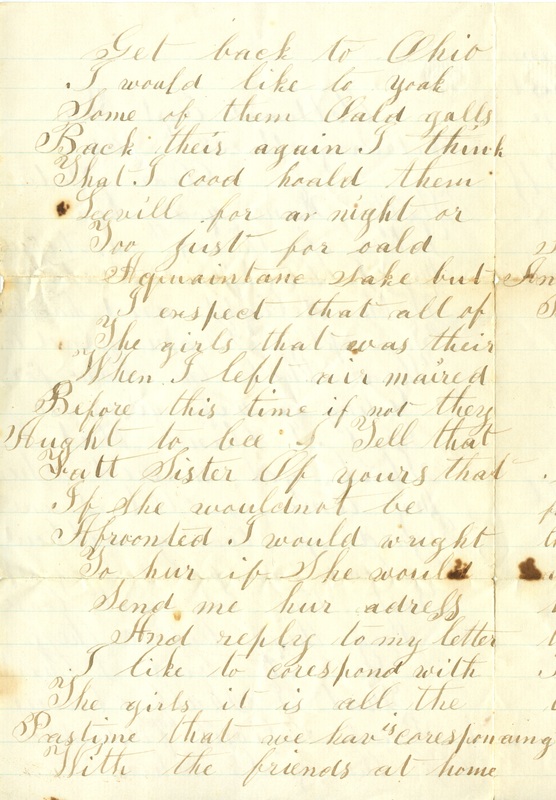 Get back to Ohio
I would like to yoak
Some of them Oald galls
Back their again I think
That I cood hoald them
Leevill for ar night or
Too just for oald
Aquaintane sake but
I exspect that all of
The girls that was their
When I left air maired
Before this time if not they
Aught to bee Tell that
Fatt Sister Of yours that
If she wouldnot be
Afroonted I would wright
To hur if She would
Send me hur adress
And reply to my letter
I like to corespond with
The girls it is all the
Pastime that we hav is coresponaing
With the friends at home